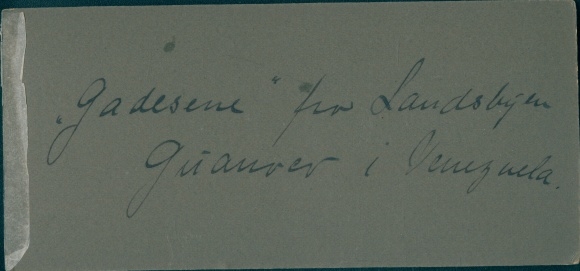 „Gadesene" fra Landsbyen
Guanoco i Venezuela.